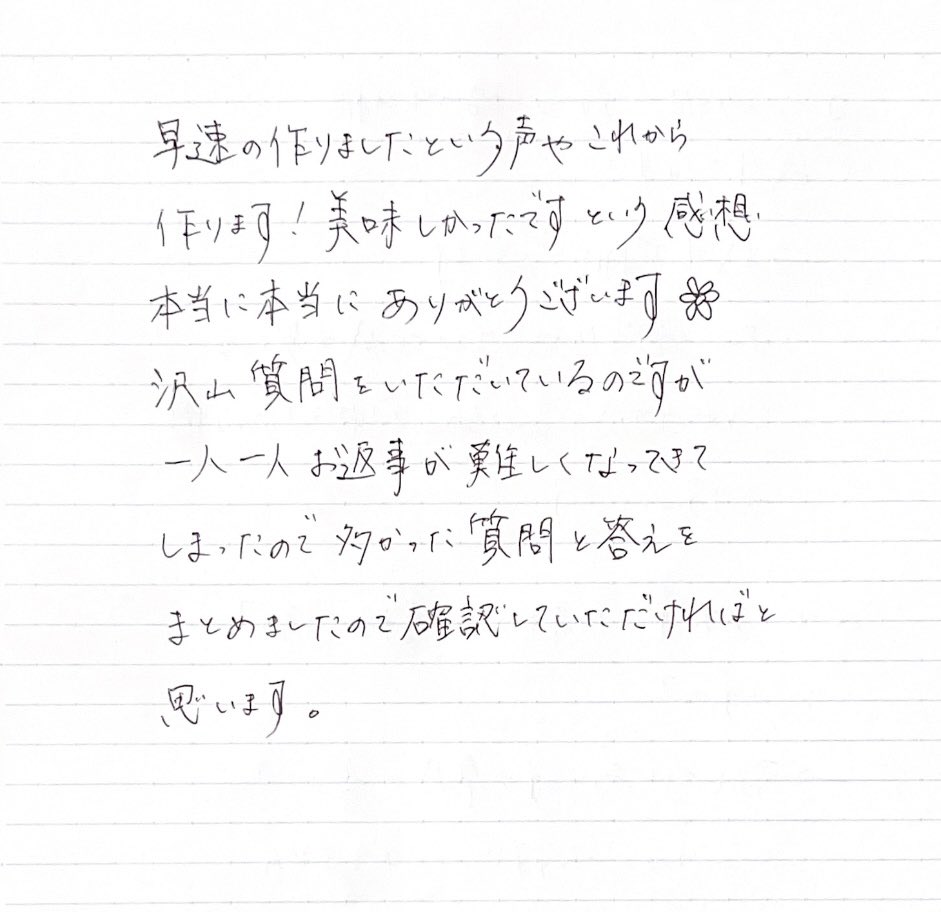 早速の作りましたという声やこれから
作ります！美味しかったですという感想
本当に本当にありがとうございます
沢山質問をいただいているのですが
一人一人お返事が難しくなってきて
しまったので多かった質問と答えを
まとめましたので確認していただければと
思います。